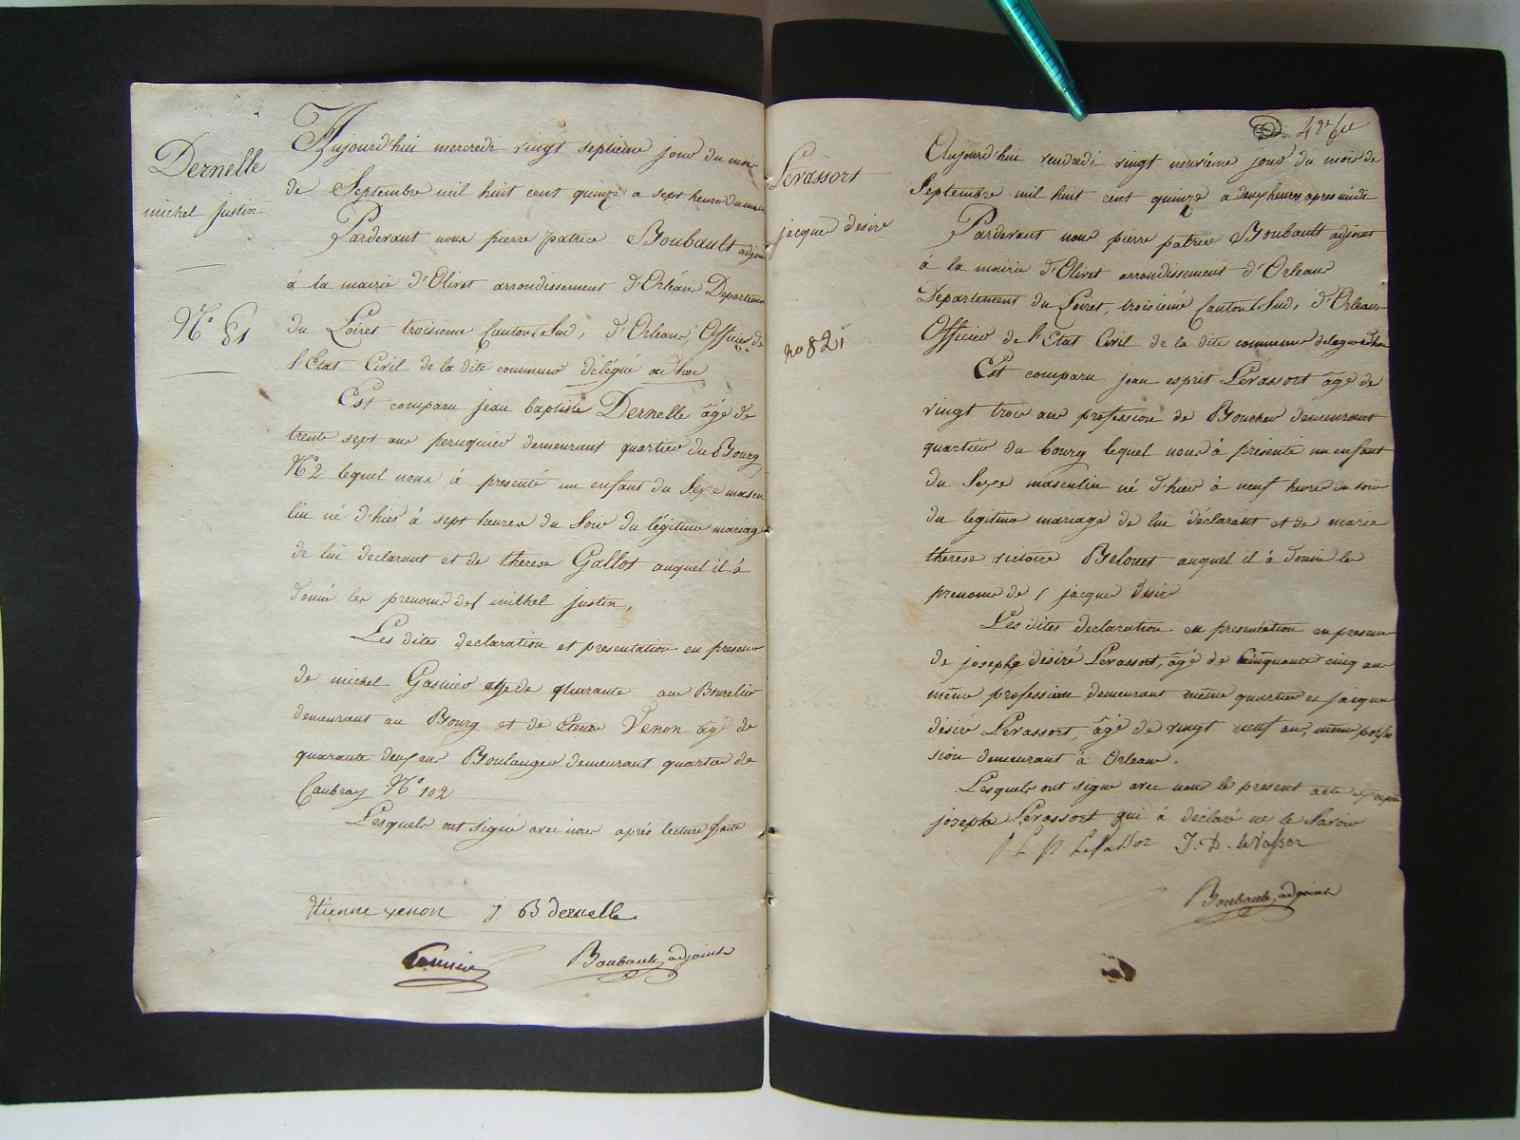 Dernelle
michel justin
N° 81
Aujourd'hui mercredi vingt septieme jour du mois
de Septembre mil huit cent quinze a sept heures du matin
Pardevant nous pierre patrice Boubault adjoint
à la mairie d'Olivet arrondissement d'Orléans Departement
du Loiret troisieme Canton Sud, d'Orleans, Officier de
l'Etat Civil de la dite commune délégué ad hoc
Est comparu jean baptiste Dernelle âgé de
trente sept ans peruquier demeurant quartier du Bourg
N° 2 lequel nous à presenté un enfant du Sexe mascu
lin né d'hier à sept heures du Soir du légitime mariage
de lui declarant et de therese Gallot auquel il à
donné les prenoms de michel justin,
Les dites declaration et presentation en presence
de michel Gasnier age de quarante ans Bourelier
demeurant au Bourg et de Etienne Venon âgé de
quarante deux ans Boulanger demeurant quartier de
Caubray N° 102
Lesquels ont signé avec nous après lecture faite
Etienne venon j B dernelle
Boubault, adjoint
Levassort
jacque desire
no 82
49e
Aujourd'hui vendredi vingt neuvième jour du mois de
Septembre mil huit cent quinze a deux heures apres midi
Pardevant nous pierre patrice Boubault adjoint
à la mairie d'Olivet arrondissement d'Orleans
Departement du Loiret, troisieme Canton Sud, d'Orleans
Officier de l'Etat Civil de la dite commune delegué ad hoc
Est comparu jean esprit Levassort âgé de
vingt trois ans profession de Boucher demeurant
quartier du bourg lequel nous à présenté un enfant
du Sexe masculin né d'hier à neuf heures du soir
du legitime mariage de lui déclarant et de marie
therese victoire Belouet auquel il à donné les
prenoms de jacque desire
Les dites declaration et presentation en presence
de josephe désiré Levassort, âgé de Cinquante cinq ans
même profession demeurant même quartier et jacque
désiré Levassort, âgé de vingt neuf ans, même profes
sion demeurant à Orleans.
Lesquels ont signé avec nous le present acte
josephe Levassort qui à déclaré ne le Savoir
J. D. levassor
Boubault, adjoint